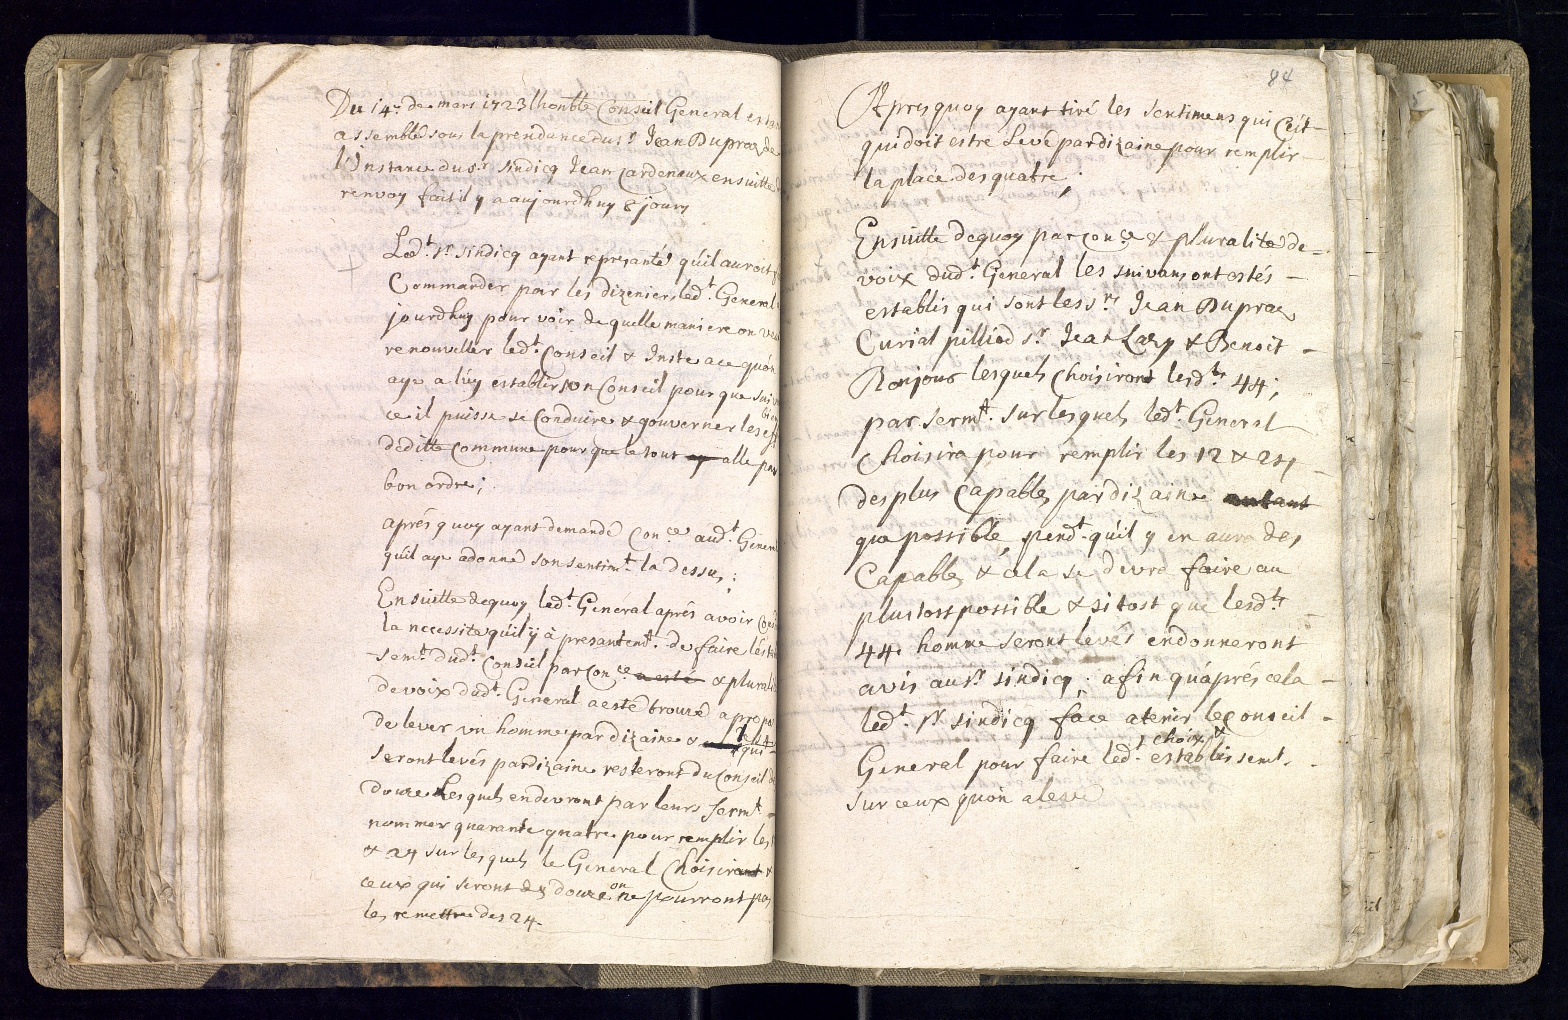 Du 14e de mars 1723 lhonble Conseil General estan
assemblé sous la presidance du sr Jean Dupraz de
l'Instance du sr sindicq Jean Cardeneux ensuitte
renvoy fait il y a aujourdhuy 8 jours
Ledt sr sindicq ayant represanté quil auroit
Commander par les dizeniers ledt General
jourdhuy pour voir de quelle maniere on
renouveller ledt Conseil & Inste a ce quon
aye a luy establir son Conseil pour que sui
ce il puisse se Conduire & gouverner les eff
deditte commune pour que le tout alle par
bon ordre;
aprés quoy ayant demandé Conce audt Gener
quil aye a donner son sentimt la dessus;
Ensuitte dequoy ledt General aprés avoir
la necessité quil y à presantemt de faire
semt dudt Conseil par Conce a esté & plurali
de voix dudt General a esté trouvé a prepo
de lever un homme par dizaine & qui
seront levés par dizaine resteront du Conseil
douze Lesquels en devront par leurs sermt
nommer quarante quatre pour remplir les
& 24 sur lesquels le General Choisiront &
ceux qui seront des douze on ne pourront pas
les remettre des 24
84
Apres quoy ayant tiré les sentimens qui Ceit
qui doit estre Levé par dizaine pour remplir
la place des quatre;
Ensuitte dequoy par Conce & pluralité de
voix dudt General les suivans ont estés
establis qui sont les srs Jean Dupraz
Curial pilliod sr Jean Lary & Benoit
Bonjour lesquels Choisiront lesdts 44;
par sermt sur lesquels ledt General
Choisira pour remplir les 12 & 24
des plus Capables par dizaine autant
que possible, pendt quil y en aura des
Capables & cela se devra faire au
plustost possible & si tost que lesdts
44 homme seront levés en donneront
avis au sr sindicq; afin qu'aprés cela
ledt sr sindicq face atenir le Conseil
General pour faire ledt choix &
establissemt
sur ceux quon a levé